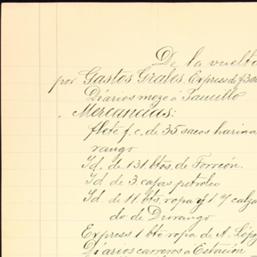 De la vuelta
por Gastos Grales. Expreso de
Diarios mozo á Saucillo
Mercancías:
flete f.c. de 35 sacos harina
rango
Id. de 131 btos. de Torreón.
Id. de 3 cajas petroleo
Id. de 11 bts. ropa y 17 calza
do de Durango
Express 1 bto ropa de A. López
Diarios carreros á Estación